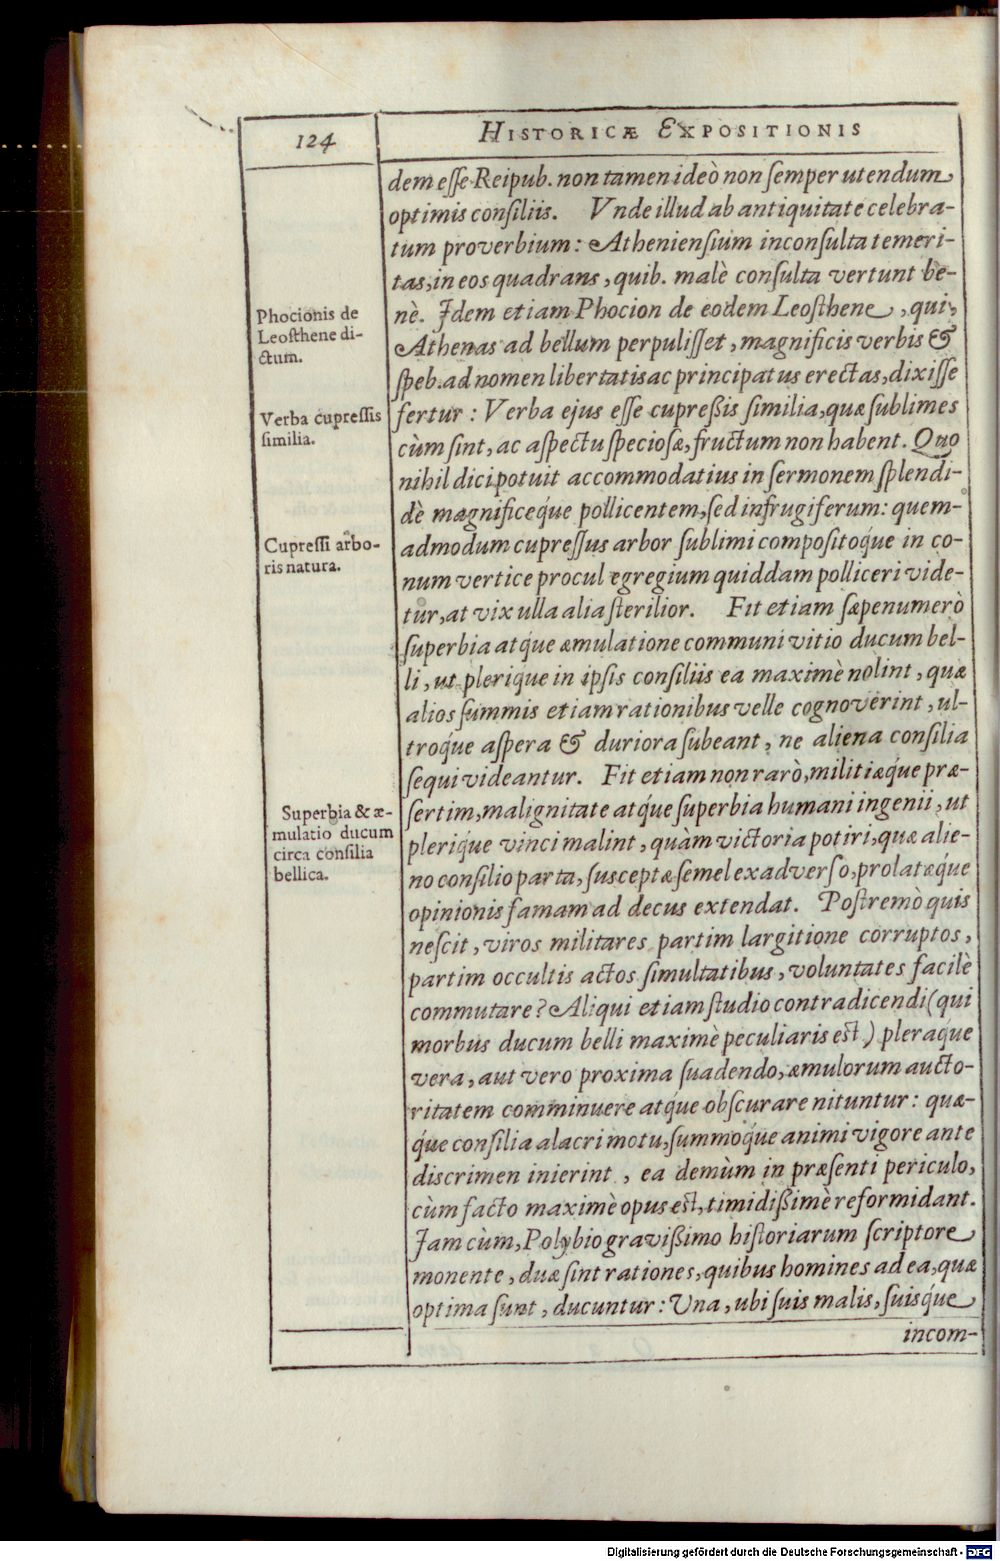 124
HISTORICÆ EXPOSITIONIS
dem esse Reipub. non tamen ideò non semper utendum
optimis consiliis. Vnde illud ab antiquitate celebra-
tum proverbium: Atheniensium inconsulta temeri-
tas, in eos quadrans, quib. malè consulta vertunt be-
nè. Idem etiam Phocion de eodem Leosthene, qui,
Athenas ad bellum perpulisset, magnificis verbis &
speb. ad nomen libertatis ac principatus erectas, dixisse
fertur: Verba ejus esse cupreßis similia, quæ sublimes
cùm sint, ac aspectu speciosæ, fructum non habent. Quo
nihil dici potuit accommodatius in sermonem splendi-
dè magnificeq́ue pollicentem, sed infrugiferum: quem-
admodum cupressus arbor sublimi compositoq́ue in co-
num vertice procul egregium quiddam polliceri vide-
tur, at vix ulla alia sterilior. Fit etiam sæpenumerò
superbia atq́ue æmulatione communi vitio ducum bel-
li, ut pleriq́ue in ipsis consiliis ea maximè nolint, quæ
alios summis etiam rationibus velle cognoverint, ul-
troq́ue aspera & duriora subeant, ne aliena consilia
sequi videantur. Fit etiam non rarò, militiæq́ue præ-
sertim, malignitate atq́ue superbia humani ingenii, ut
pleriq́ue vinci malint, quàm victoria potiri, quæ alie-
no consilio parta, susceptæ semel ex adverso, prolatæq́ue
opinionis famam ad decus extendat. Postremò quis
nescit, viros militares partim largitione corruptos,
partim occultis actos simultatibus, voluntates facilè
commutare? Aliqui etiam studio contradicendi (qui
morbus ducum belli maximè peculiaris est) pleraq́ue
vera, aut vero proxima suadendo, æmulorum aucto-
ritatem comminuere atq́ue obscurare nituntur: quæ-
q́ue consilia alacri motu, summoq́ue animi vigore ante
discrimen inierint, ea demùm in præsenti periculo,
cùm facto maximè opus est, timidißimè reformidant.
Jam cùm, Polybio gravißimo historiarum scriptore
monente, duæ sint rationes, quibus homines ad ea, quæ
optima sunt, ducuntur: Una, ubi suis malis, suisq́ue
incom-
Phocionis de
Leosthene di-
ctum.
Verba cupressis
similia.
Cupressi arbo-
ris natura.
Superbia & æ-
mulatio ducum
circa consilia
bellica.
Digitalisierung gefördert durch die Deutsche Forschungsgemeinschaft - DFG